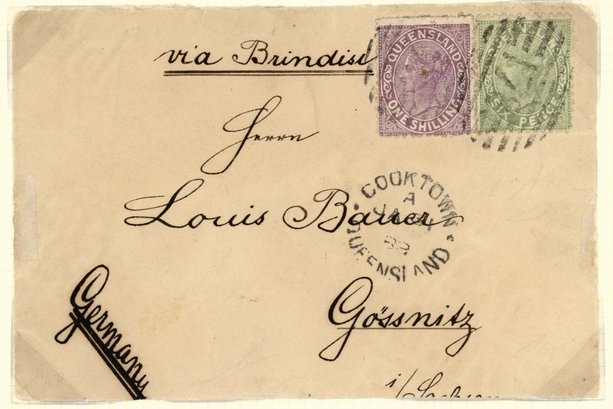 via Brindisi
QUEENSLAND
ONE SHILLING
SIX PENCE
Herrn
Louis Bauer
COOKTOWN
A
82
QUEENSLAND
Gössnitz
i/Sachsen
Germany